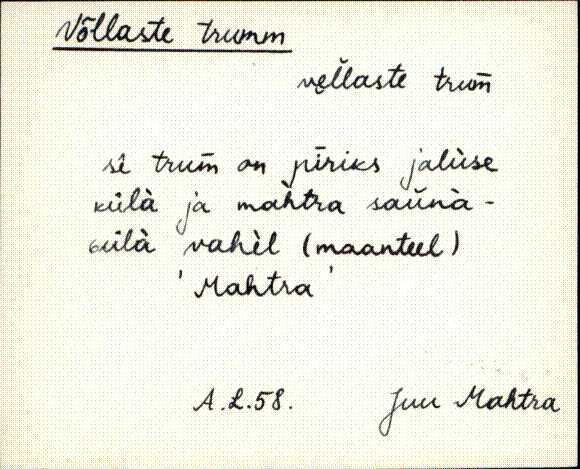 Võllaste trumm
vel̆laste trum̄
sê trum̄ on pīriks jaliise
külà ja mahtra saūnà -
külà vahèl (maanteel)
'Mahtra'
A.L.58. Juu Mahtra